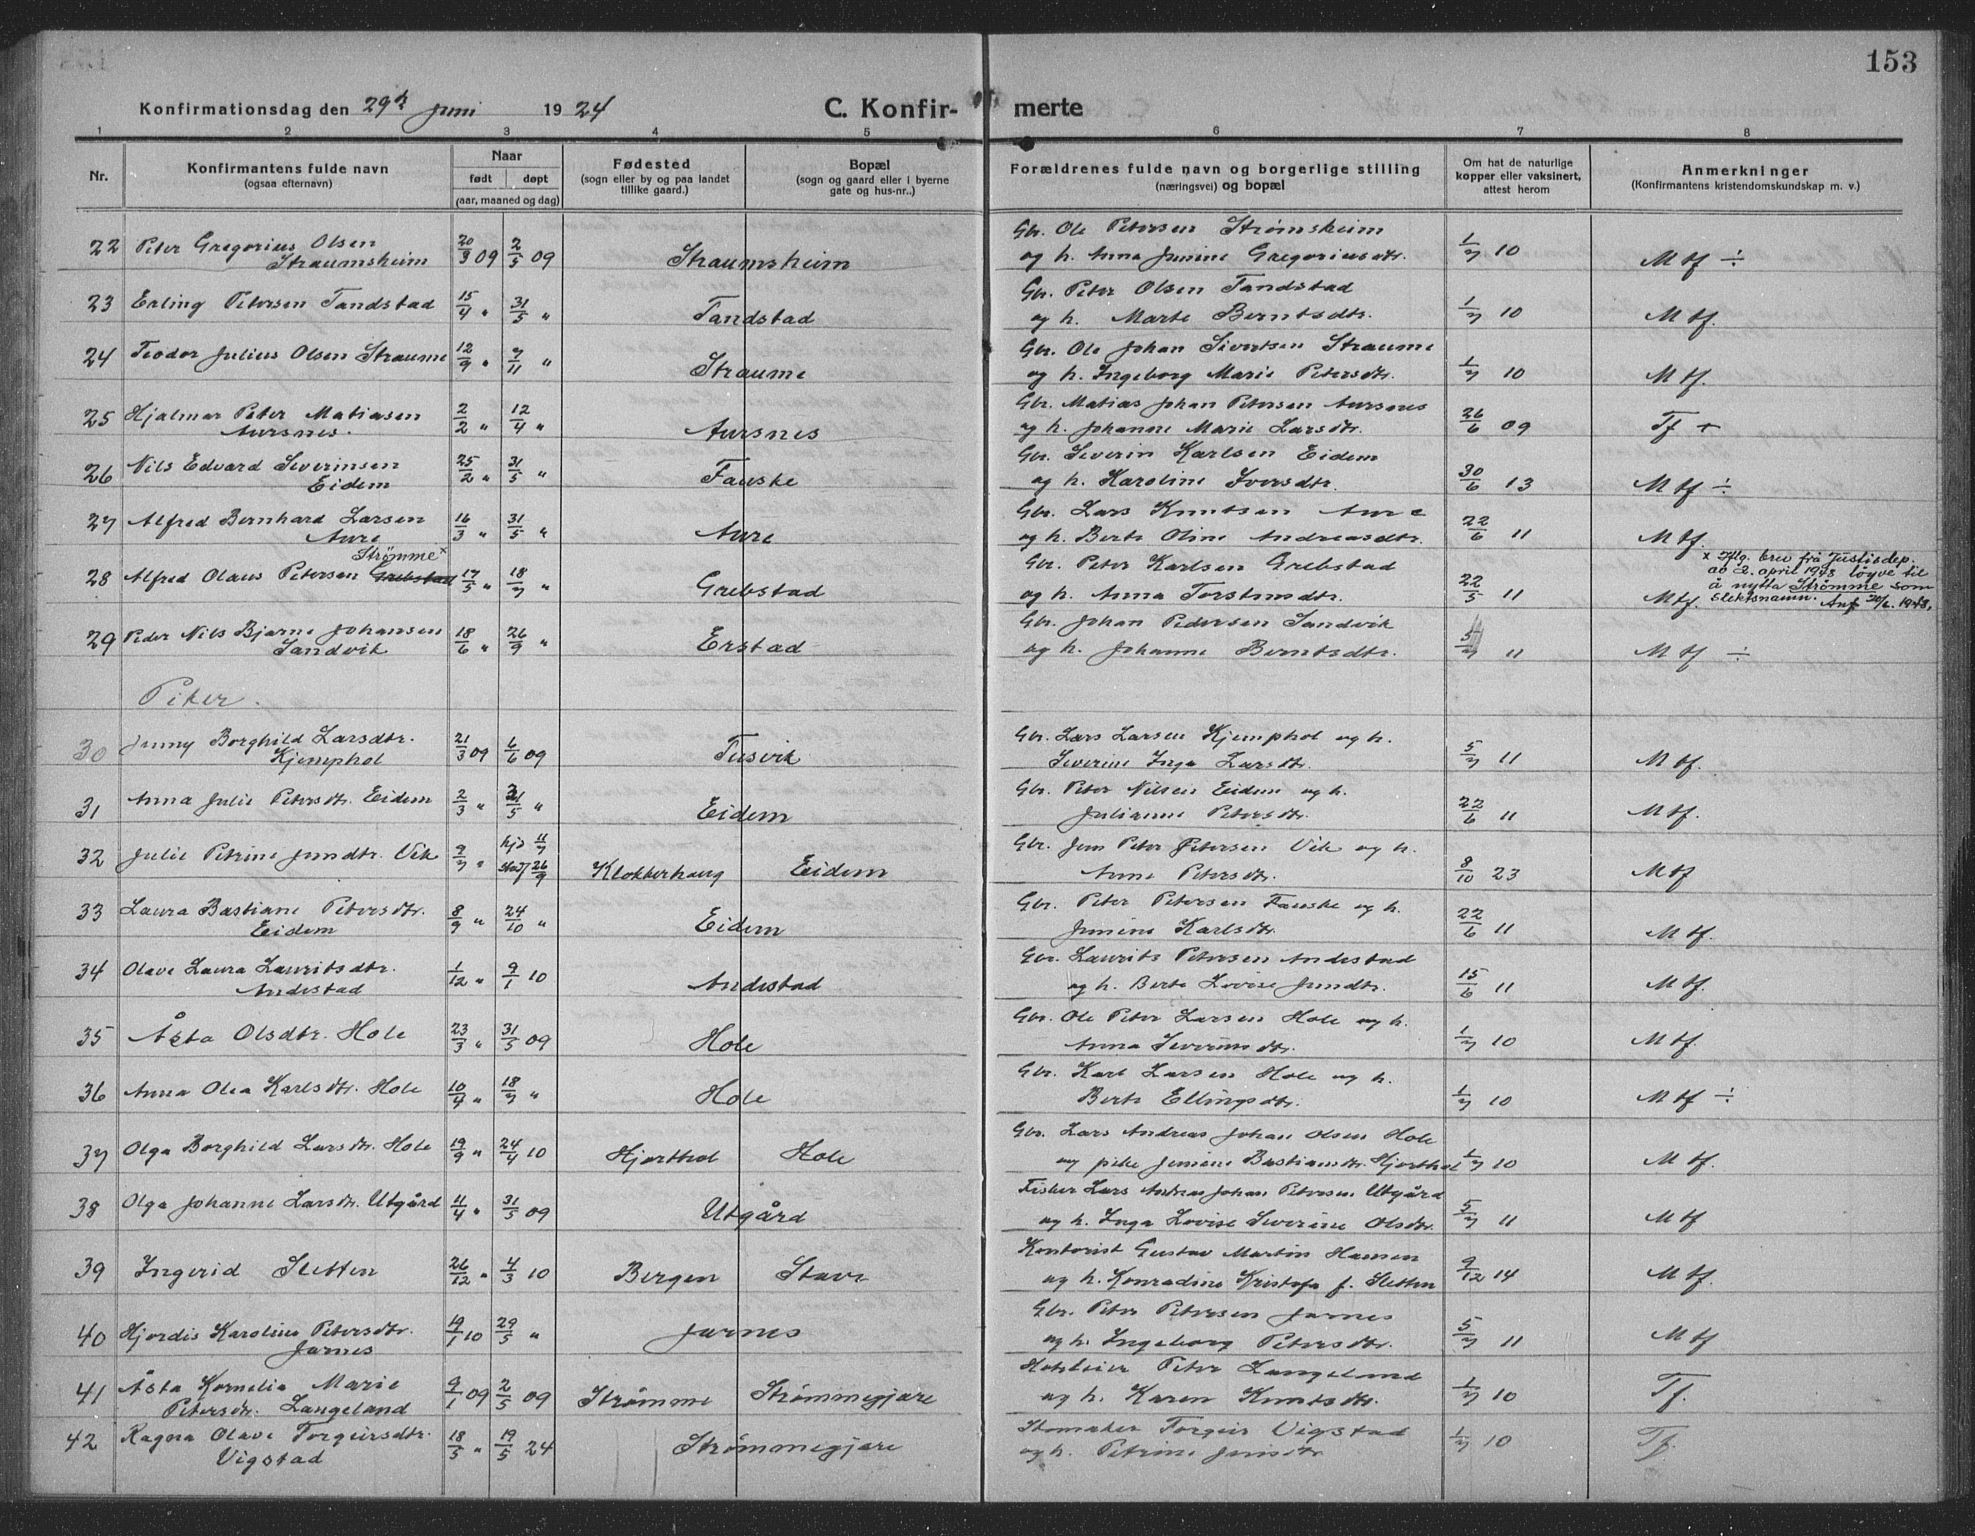 153
Konfirmationsdag den 29de Juni 1924 C. Konfirmerte
1 2 3 4 5 6 7 8
Nr. Konfirmantens fulde navn (ogsaa efternavn) Naar født døpt (aar, maaned og dag) Fødested (sogn eller by og paa landet tillike gaard.) Bopæl (sogn og gaard eller i byerne gate og hus-nr..) Forældrenes fulde navn og borgerlige stilling (næringsvei) og bopæl Om hat de naturlige kopper eller vaksinert, attest herom Anmerkninger (Konfirmantens kristendomskundskap m. v.)
22 Peter Gregorius Olsen Straumsheim 20/3 09 2/5 09 Straumsheim Gbr. Ole Petersen Strømsheim og h. Anna Jenine Gregoriusdtr. 1/7 10 Mtf ÷
23 Erling Petersen Tandstad 15/4 " 31/5 " Tandstad Gbr. Peter Olsen Tandstad og h. Marte Berntsdtr. 1/7 10 Mtf.
24 Teodor Julius Olsen Straume 12/9 " 7/11 " Straume Gbr. Ole Johan Sivertsen Straume og h. Ingeborg Marie Petersdtr. 1/7 10 Mtf.
25 Hjalmar Peter Matiasen Aursnes. 2/2 " 12/4 " Aursnes Gbr. Matias Johan Petersen Aursnes og h. Johanne Marie Larsdtr. 26/6 09 Tf +
26 Nils Edvard Severinsen Eidem 25/2 " 31/5 " Fauske Gbr. Severin Karlsen Eidem og h. Karoline Iversdtr. 30/6 13 Mtf ÷
27 Alfred Bernhard Larsen Aure 16/3 " 31/5 " Aure Gbr. Lars Knutsen Aure og h. Berte Oline Andreasdtr. 22/6 11 Mtf.
28 Alfred Olaus Petersen Grebstad Strømme x 17/5 " 18/7 " Grebstad Gbr. Peter Karlsen Grebstad og h. Anna Torstensdtr. 22/5 11 Mtf.
x Iflg. brev frå Justisdep.
av 2. april 1948 løyve til
å nytta Strømme som
slektsnamn. Anf 20/6. 1948.
29 Peder Nils Bjarne Johansen Sandvik 18/6 " 26/9 " Erstad Gbr. Johan Pedersen Sandvik og h. Johanne Berntsdtr. 5/7 11 Mtf ÷
Piker.
30 Jenny Borghild Larsdtr. Kjemphol 21/3 09 6/6 09 Tusvik Gbr. Lars Larsen Kjemphol og h. Severine Inga Larsdtr. 5/7 11 Mtf.
31 Anna Julie Petersdtr. Eidem 2/3 " 31/5 " Eidem Gbr. Peter Nilsen Eidem og h. Julianne Petersdtr. 22/6 11 Mtf.
32 Julie Petrine Jensdtr. Vik 7/7 " hjd 11/7 stadf 26/9 Klokkerhaug Eidem Gbr. Jens Peter Petersen Vik og h. Anne Petersdtr. 8/10 23 Mtf
33 Laura Bastiane Petersdtr. Eidem 8/9 " 24/10 " Eidem Gbr. Peter Petersen Fauske og h. Jenine Karlsdtr. 22/6 11 Mtf.
34 Olave Laura Lauritsdtr. Andestad 1/12 " 9/1 10 Andestad Gbr. Laurits Petersen Andestad og h. Berte Lovise Jensdtr. 15/6 11 Mtf.
35 Åsta Olsdtr. Hole 23/3 " 31/5 09 Hole Gbr. Ole Peter Larsen Hole og h. Anna Severinsdtr. 1/7 10 Mtf.
36 Anna Olea Karlsdtr. Hole 10/4 " 18/7 " Hole Gbr. Karl Larsen Hole og h. Berte Ellingsdtr. 1/7 10 Mtf ÷
37 Olga Borghild Larsdtr. Hole 19/9 " 24/4 10 Hjorthol Hole Gbr. Lars Andreas Johan Olsen Hole og pike Jensine Bastiansdtr. Hjorthol 1/7 10 Mtf.
38 Olga Johanne Larsdtr. Utgård 4/4 " 31/5 09 Utgård Fisker Lars Andreas Johan Petersen Utgård og h. Inga Lovise Severine Olsdtr. 5/7 11 Mtf
39 Ingerid Sletten 26/12 " 4/3 10 Bergen Stave Kontorist Gustav Martin Hansen og h. Konradine Kristofa f. Sletten 9/12 14 Mtf.
40 Hjordis Karoline Petersdtr. Jarnes 19/1 10 29/5 " Jarnes Gbr. Peter Petersen Jarnes og h. Ingeborg Petersdtr. 5/7 11 Mtf
41 Åsta Kornelia Marie Petersdtr. Langeland 9/1 09 2/5 09 Strømme Strømmegjære Peter Langeland og h. Karen Knutsdtr. 1/7 10 Tf.
42 Ragna Olave Torgeirsdtr. Vigstad 18/5 " 19/5 24 Strømmegjære Skomaker Torgeir Vigstad og h. Petrine Jensdtr 1/7 10 Tf.